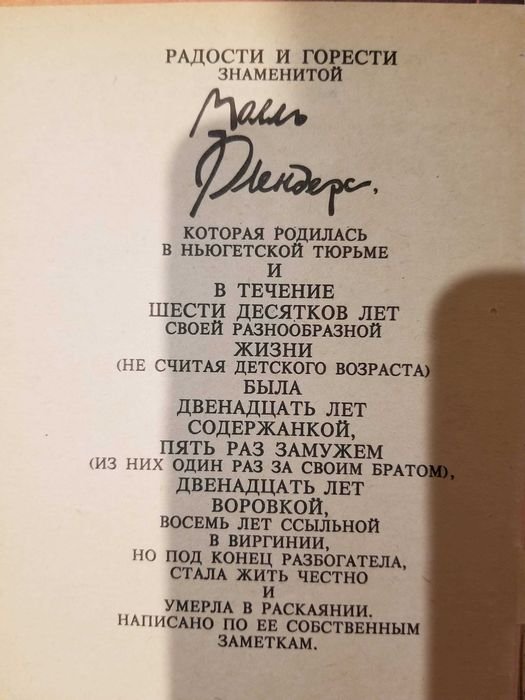 РАДОСТИ И ГОРЕСТИ
ЗНАМЕНИТОЙ
Молль
Флендерс,
КОТОРАЯ РОДИЛАСЬ
В НЬЮГЕТСКОЙ ТЮРЬМЕ
И
В ТЕЧЕНИЕ
ШЕСТИ ДЕСЯТКОВ ЛЕТ
СВОЕЙ РАЗНООБРАЗНОЙ
ЖИЗНИ
(НЕ СЧИТАЯ ДЕТСКОГО ВОЗРАСТА)
БЫЛА
ДВЕНАДЦАТЬ ЛЕТ
СОДЕРЖАНКОЙ,
ПЯТЬ РАЗ ЗАМУЖЕМ
(ИЗ НИХ ОДИН РАЗ ЗА СВОИМ БРАТОМ),
ДВЕНАДЦАТЬ ЛЕТ
ВОРОВКОЙ,
ВОСЕМЬ ЛЕТ ССЫЛЬНОЙ
В ВИРГИНИИ,
НО ПОД КОНЕЦ РАЗБОГАТЕЛА,
СТАЛА ЖИТЬ ЧЕСТНО
И
УМЕРЛА В РАСКАЯНИИ.
НАПИСАНО ПО ЕЕ СОБСТВЕННЫМ
ЗАМЕТКАМ.